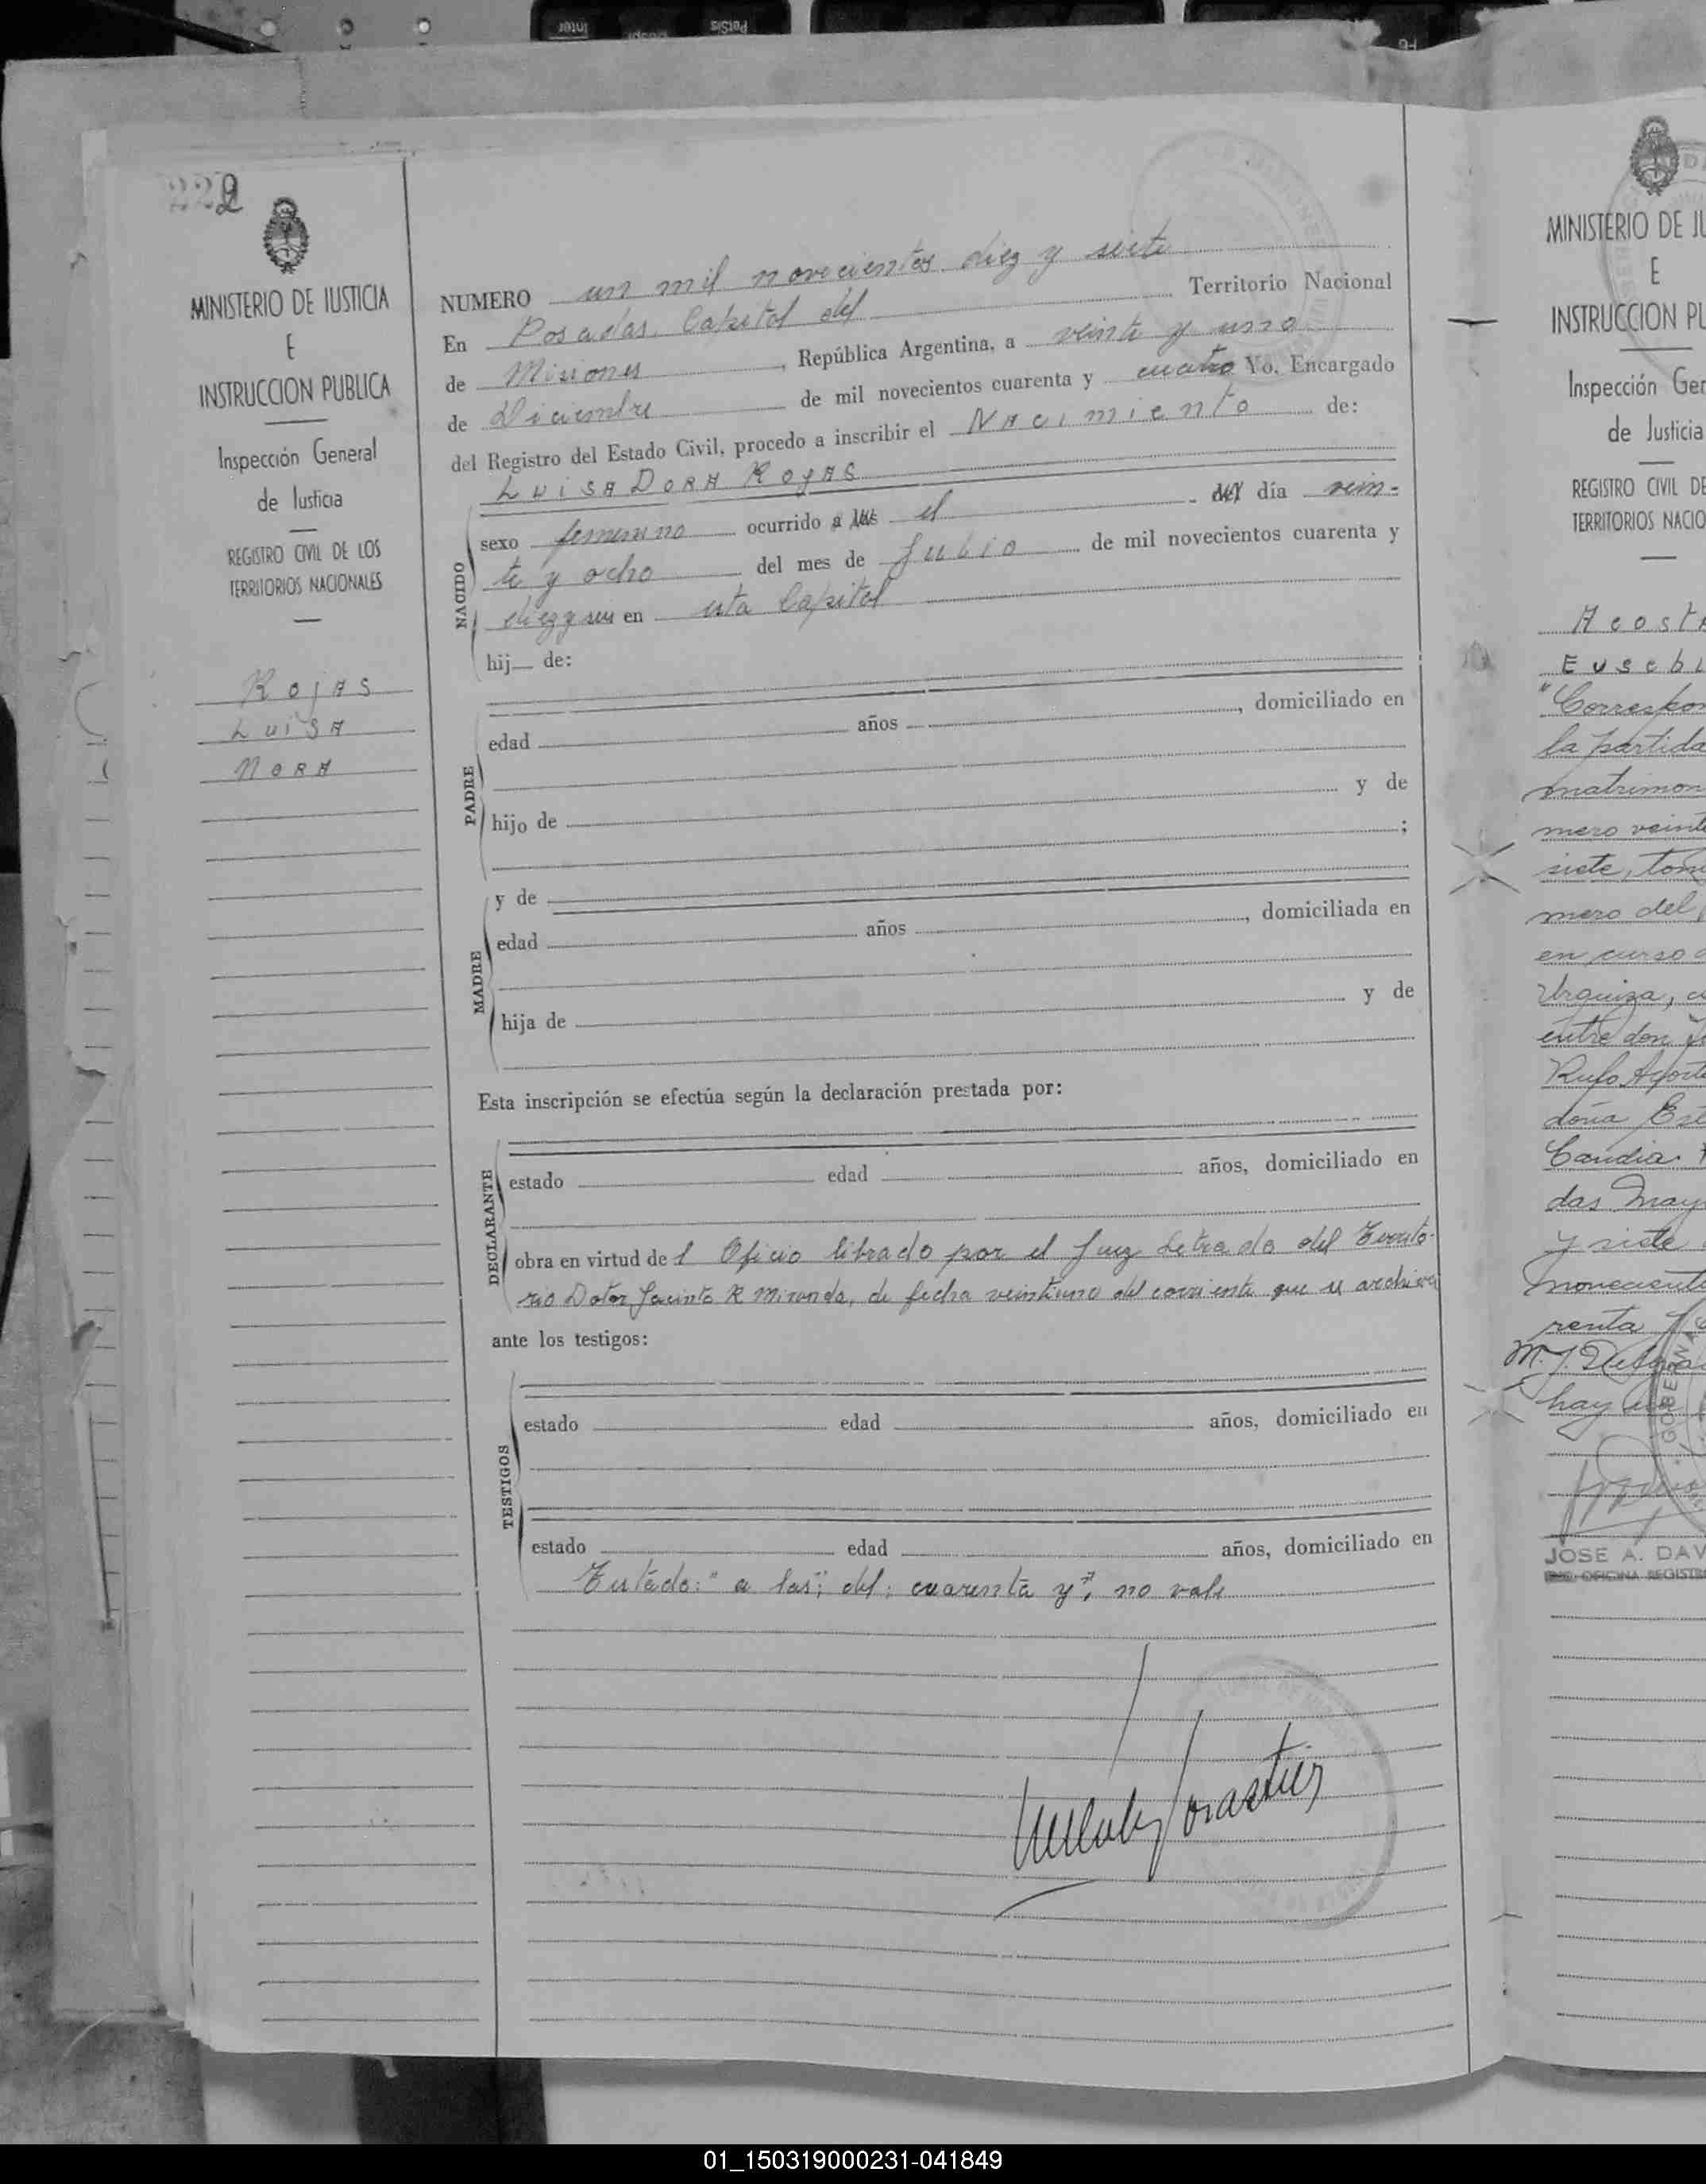 222
MINISTERIO DE JUSTICIA
E
INSTRUCCION PUBLICA
Inspección General
de Justicia
REGISTRO CIVIL DE LOS
TERRITORIOS NACIONALES
Rojas
Luisa
Nora
NUMERO un mil novecientos diez y siete
En Posadas, Capital del Territorio Nacional
de Misiones, República Argentina, a veinte y uno
de Diciembre de mil novecientos cuarenta y cuatro Yo, Encargado
del Registro del Estado Civil, procedo a inscribir el Nacimiento de:
LUISA DORA ROJAS
NACIDO
sexo femenino ocurrido a las el del día vein-
te y ocho del mes de Julio de mil novecientos cuarenta y
diez y seis en esta Capital
hij de:
PADRE
edad años , domiciliado en
hijo de y de
;
y de
MADRE
edad años , domiciliada en
hija de y de
Esta inscripción se efectúa según la declaración prestada por:
DECLARANTE
estado edad años, domiciliado en
obra en virtud del Oficio librado por el Juez Letrado del Territo-
rio Dotor Jacinto R Miranda, de fecha veintiuno del corriente que se archiva
ante los testigos:
TESTIGOS
estado edad años, domiciliado en
estado edad años, domiciliado en
Testado: "a las"; del; cuarenta y", no vale
MINISTERIO DE JU
E
INSTRUCCION PU
Inspección Gen
de Justicia
REGISTRO CIVIL DE
TERRITORIOS NACIO
Acosta
Eusebi
"Correspon
la partida
matrimon
mero veinte
siete, tom
mero del
en curso
Urquiza,
entre don
Rufo
doña
Candia
das May
y siete
novecient
renta
hay
JOSE A. DAV
ENC. OFICINA REGISTR
01_150319000231-041849